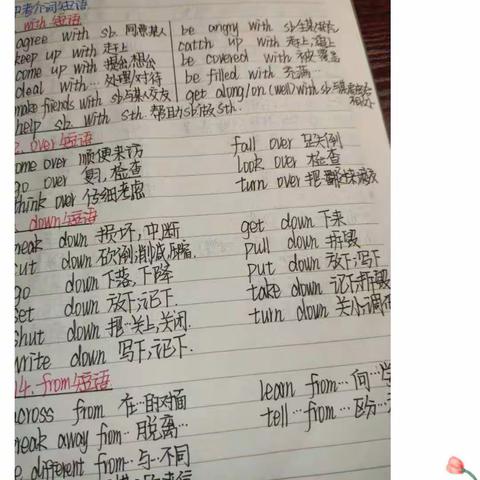 中考介词短语
with 短语
agree with sb. 同意某人 be angry with sb
keep up with 赶上 catch up with 赶上,追上
come up with 提出,想出 be covered with 被…覆盖
deal with… 处理/对待 be filled with 充满…
make friends with sb 与某人交友 get along/on (well) with sb
help sb. with sth. 帮助sb做sth.
2. over 短语
come over 顺便来访 fall over 跌倒
go over 复习,检查 look over 检查
think over 仔细考虑 turn over 把
down 短语
break down 损坏,中断 get down 下来
cut down 砍倒,削减,压缩 pull down 拆毁
go down 下落,下降 put down 放下,写下
set down 放下,记下 take down 记下,拆毁
shut down 把…关上,关闭. turn down 关小,调低
write down 写下,记下.
14. from 短语
across from 在…的对面 learn from… 向…学
break away from… 脱离… tell…from… 区分…
be different from… 与…不同